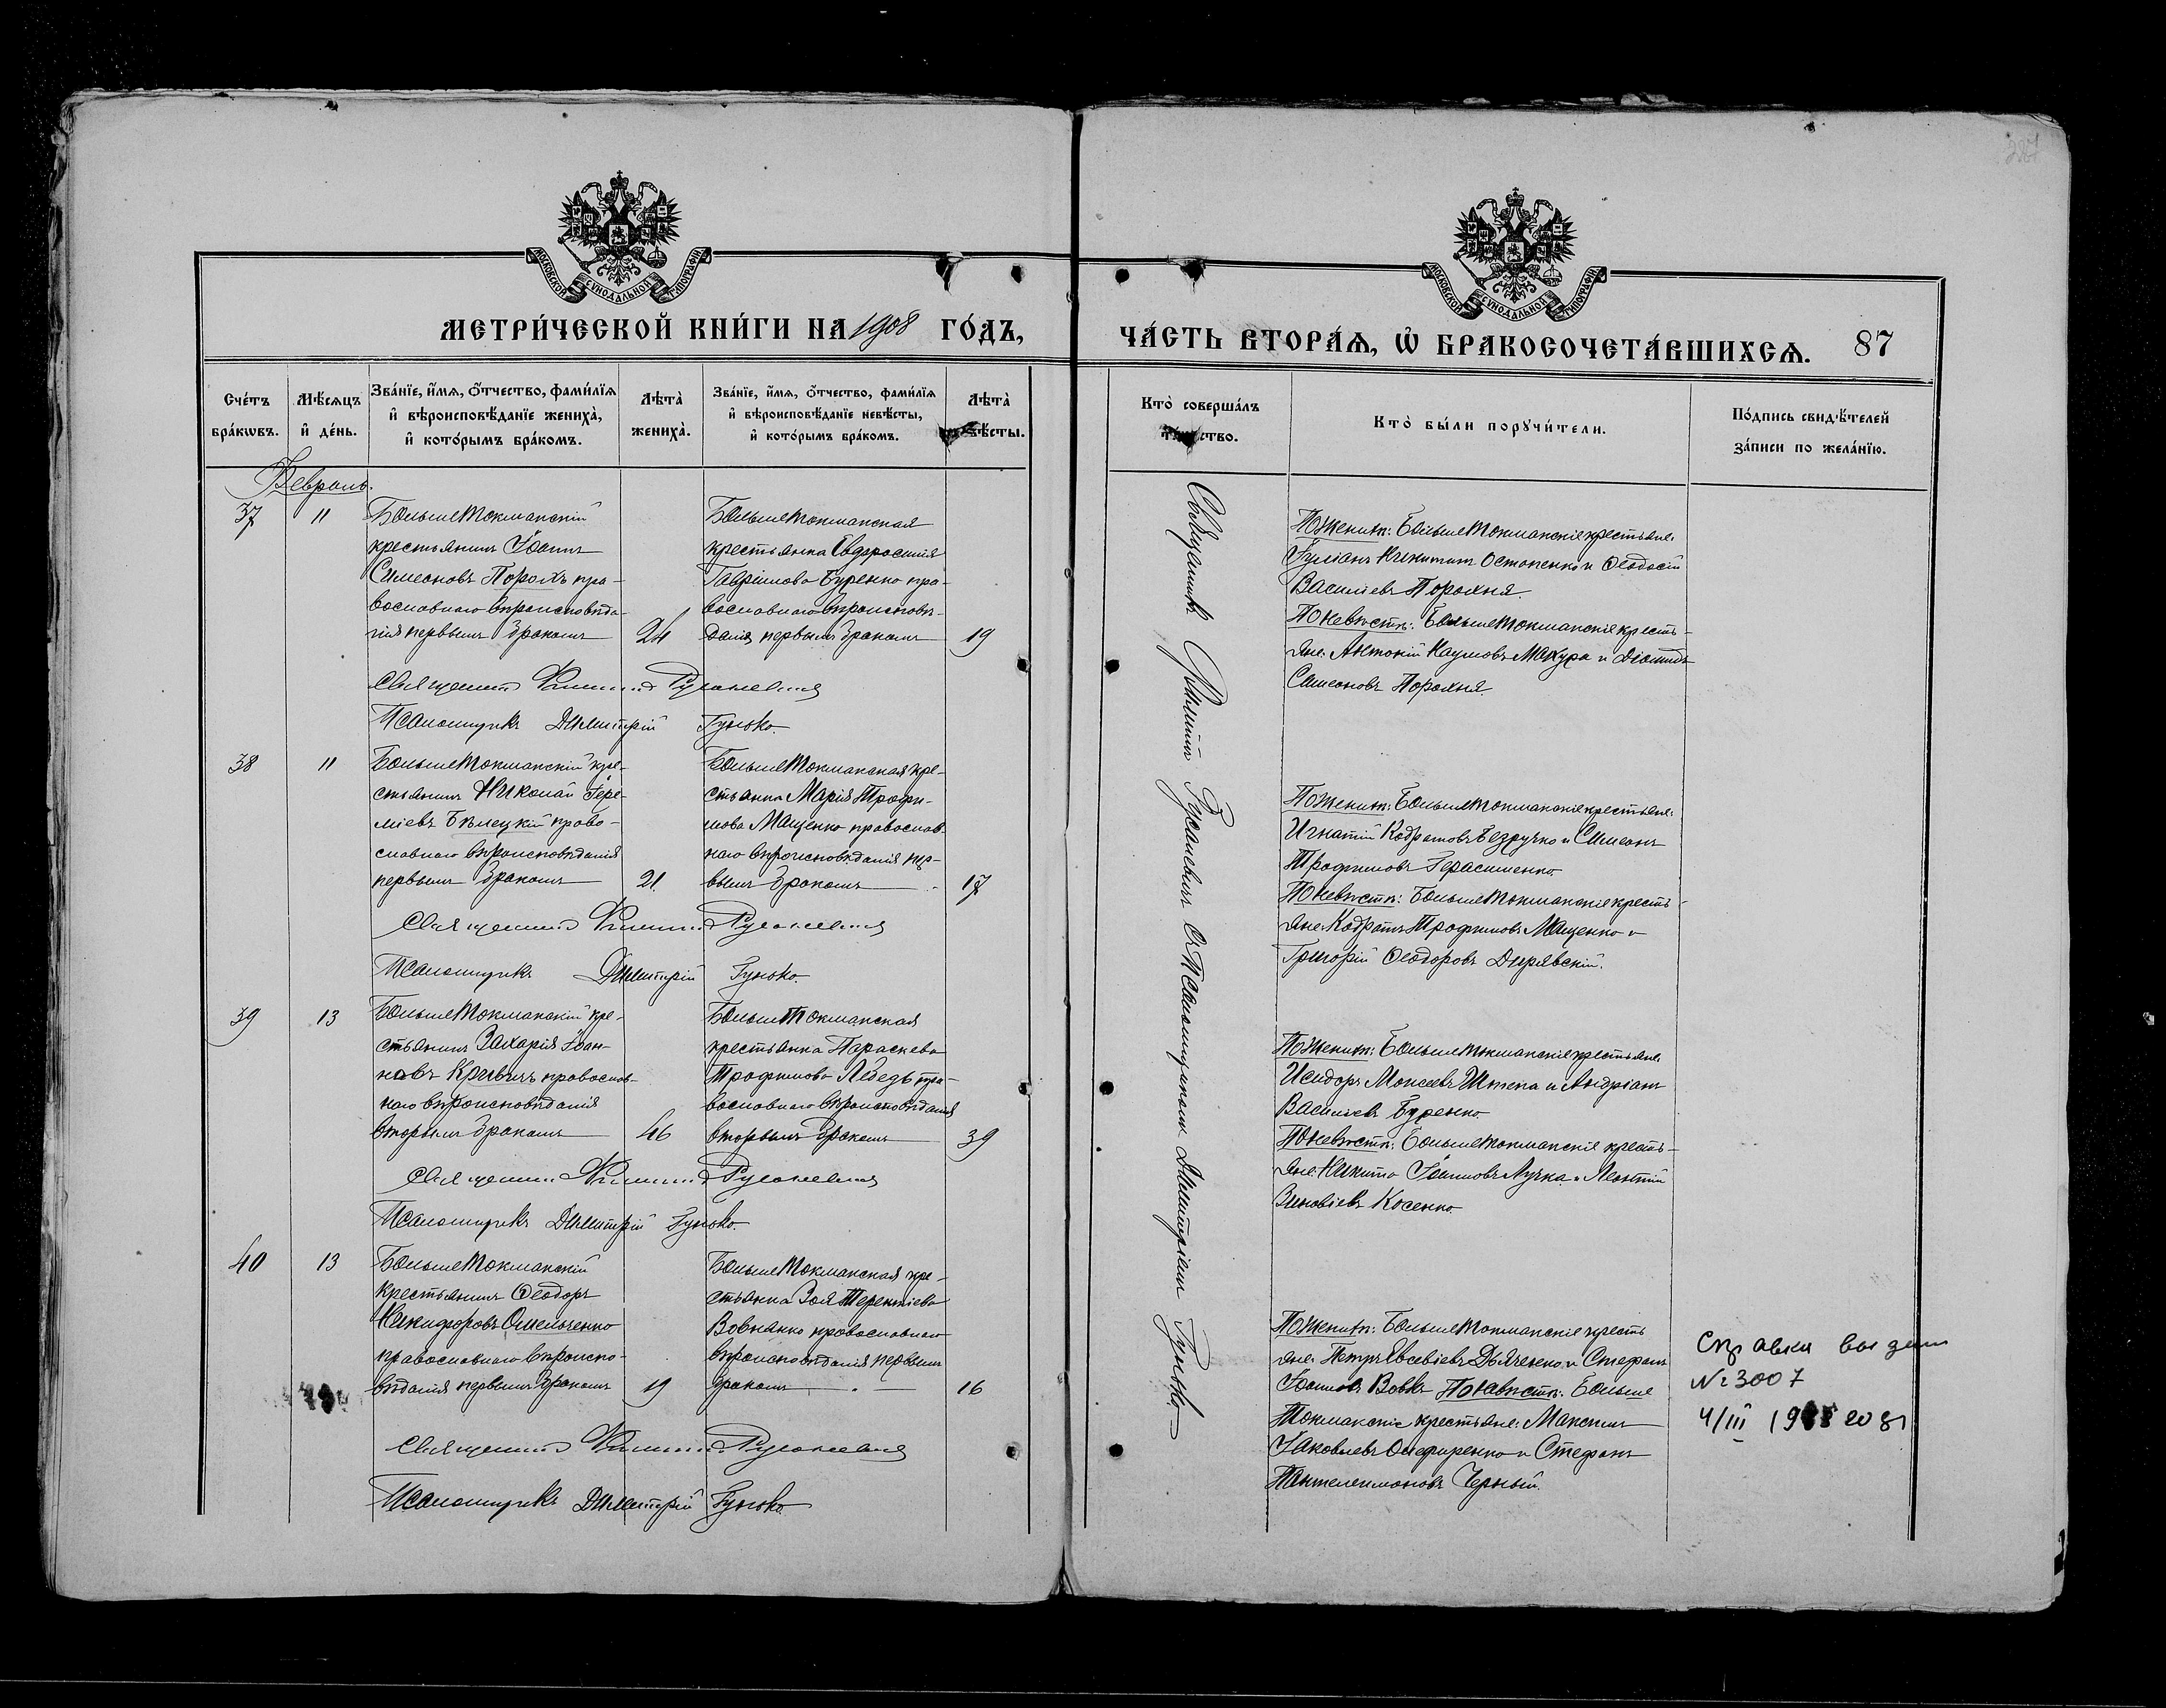 МОСКОВСКОЙ СѴНОДАЛЬНОЙ ТИПОГРАФІИ
МЕТРИ́ЧЕСКОЙ КНИ́ГИ НА 1908 ГО́ДЪ,
Сче́тъ бра́кωвъ.
Мѣ́сяцъ и҆ де́нь.
Зва́нїе, и҆́мѧ, о҆́тчество, фами́лїѧ
и҆ вѣроисповѣ́данїе жениха̀,
и҆ кото́рымъ бра́комъ.
Лѣта̀ жениха̀.
Зва́нїе, и҆́мѧ, о҆́тчество, фами́лїѧ
и҆ вѣроисповѣ́данїе невѣ́сты,
и҆ кото́рымъ бра́комъ.
Лѣта̀
Февраль.
37
11
Большетокмакскій
крестьянинъ Іоаннъ
Симеоновъ Порохъ пра-
вославнаго вѣроисповѣда-
нія первымъ бракомъ
24
Большетокмакская
крестьянка Евфросинія
Гавріилова Буренко пра-
вославнаго вѣроисповѣ-
данія первымъ бракомъ
19
Священникъ Филиппъ Русаневичъ
Псаломщикъ Димитрій Гунько.
38
11
Большетокмакскій кре-
стьянинъ Николай Іере-
міевъ Бѣлецкій право-
славнаго вѣроисповѣданія
первымъ бракомъ
21
Большетокмакская кре-
стьянка Марія Трофи-
мова Мащенко православ-
наго вѣроисповѣданія пер-
вымъ бракомъ
17
Священникъ Филиппъ Русаневичъ
Псаломщикъ Димитрій Гунько.
39
13
Большетокмакскій кре-
стьянинъ Захарія Іоан-
новъ Кривичъ православ-
наго вѣроисповѣданія
вторымъ бракомъ
46
Большетокмакская
крестьянка Параскева
Трофимова Лебедь пра-
вославнаго вѣроисповѣданія
вторымъ бракомъ
39
Священникъ Филиппъ Русаневичъ
Псаломщикъ Димитрій Гунько.
40
13
Большетокмакскій
крестьянинъ Ѳеодоръ
Никифоровъ Омельченко
православнаго вѣроиспо-
вѣданія первымъ бракомъ
19
Большетокмакская кре-
стьянка Зоя Терентіева
Вовнянко православнаго
вѣроисповѣданія первымъ
бракомъ
16
Священникъ Филиппъ Русаневичъ
Псаломщикъ Димитрій Гунько.
МОСКОВСКОЙ СѴНОДАЛЬНОЙ ТИПОГРАФІИ
ЧА́СТЬ ВТОРА́Ѧ, Ѡ҆ БРАКОСОЧЕТА́ВШИХСѦ. 87
Кто̀ соверша́лъ
Кто̀ бы́ли порꙋчи́тели.
По́дпись свидѣ́телей
за́писи по жела́нїю.
Священникъ Филиппъ Русаневичъ съ Псаломщикомъ Димитріемъ Гунько
По женихѣ: Большетокмакскіе крестьяне:
Іуліанъ Никитинъ Остапенко и Ѳеодосій
Василіевъ Порохня.
По невѣстѣ: Большетокмакскіе кресть-
яне: Антоній Наумовъ Махура и Діомидъ
Симеоновъ Порохня.
По женихѣ: Большетокмакскіе крестьяне:
Игнатій Кодратовъ Безручко и Симеонъ
Трофимовъ Герасименко.
По невѣстѣ: Большетокмакскіе кресть-
яне: Кодратъ Трофимовъ Мащенко и
Григорій Ѳеодоровъ Дирявскій.
По женихѣ: Большетокмакскіе крестьяне:
Исидоръ Моисеевъ Шпепа и Андріанъ
Василіевъ Буренко
По невѣстѣ: Большетокмакскіе кресть-
яне: Никита Іоанновъ Лучка и Леонтій
Зиновіевъ Косенко.
По женихѣ: Большетокмакскіе кресть
яне: Петръ Евсевіевъ Дьяченко и Стефанъ
Іоанновъ Вовкъ По невѣстѣ: Больше
Токмакскіе крестьяне: Максимъ
Іаковлевъ Онефиренко и Стефанъ
Пантелеимоновъ Черный.
Справка выдана
№ 3007